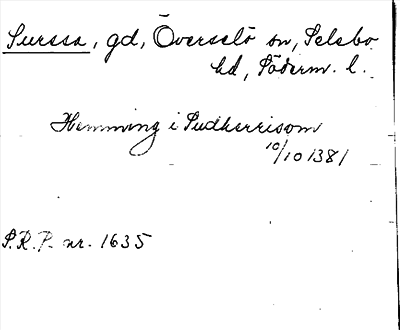 Surssa, gd, Överselö sn, Selebo
hd, Söderm. l.
Hemming i Sudherrisom
10/10 1381
S.R.P. nr. 1635